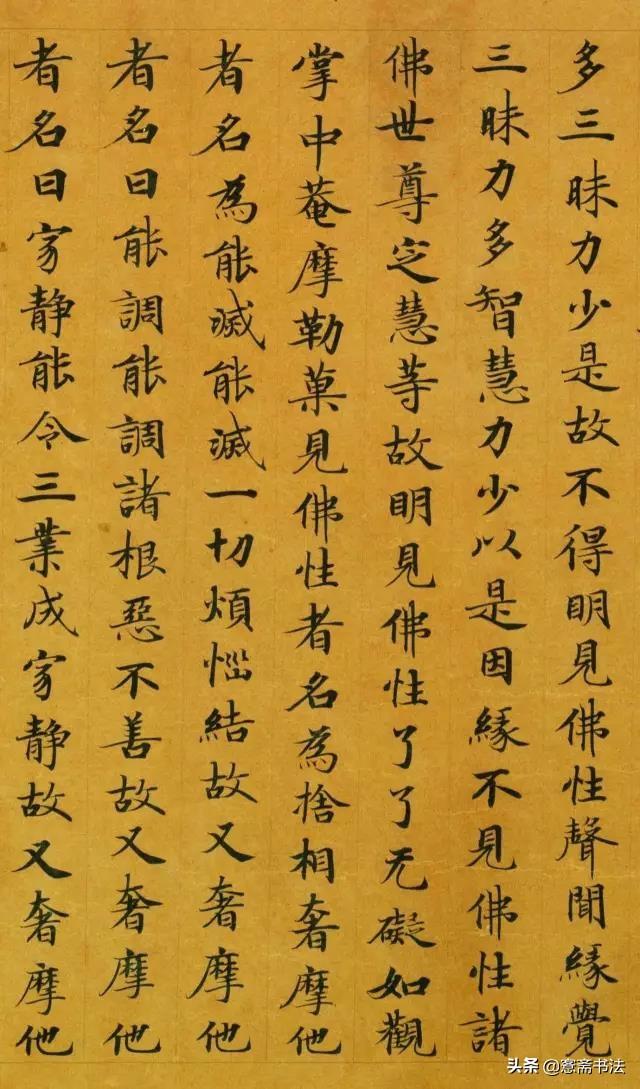 多三昧力少是故不得明見佛性聲聞緣覺
三昧力多智慧力少以是因緣不見佛性諸
佛世尊定慧等故明見佛性了了无礙如觀
掌中菴摩勒菓見佛性者名為捨相奢摩他
者名為能滅能滅一切煩惱結故又奢摩他
者名曰能調能調諸根惡不善故又奢摩他
者名曰寂静能令三業成寂静故又奢摩他
头条 @窻斋书法